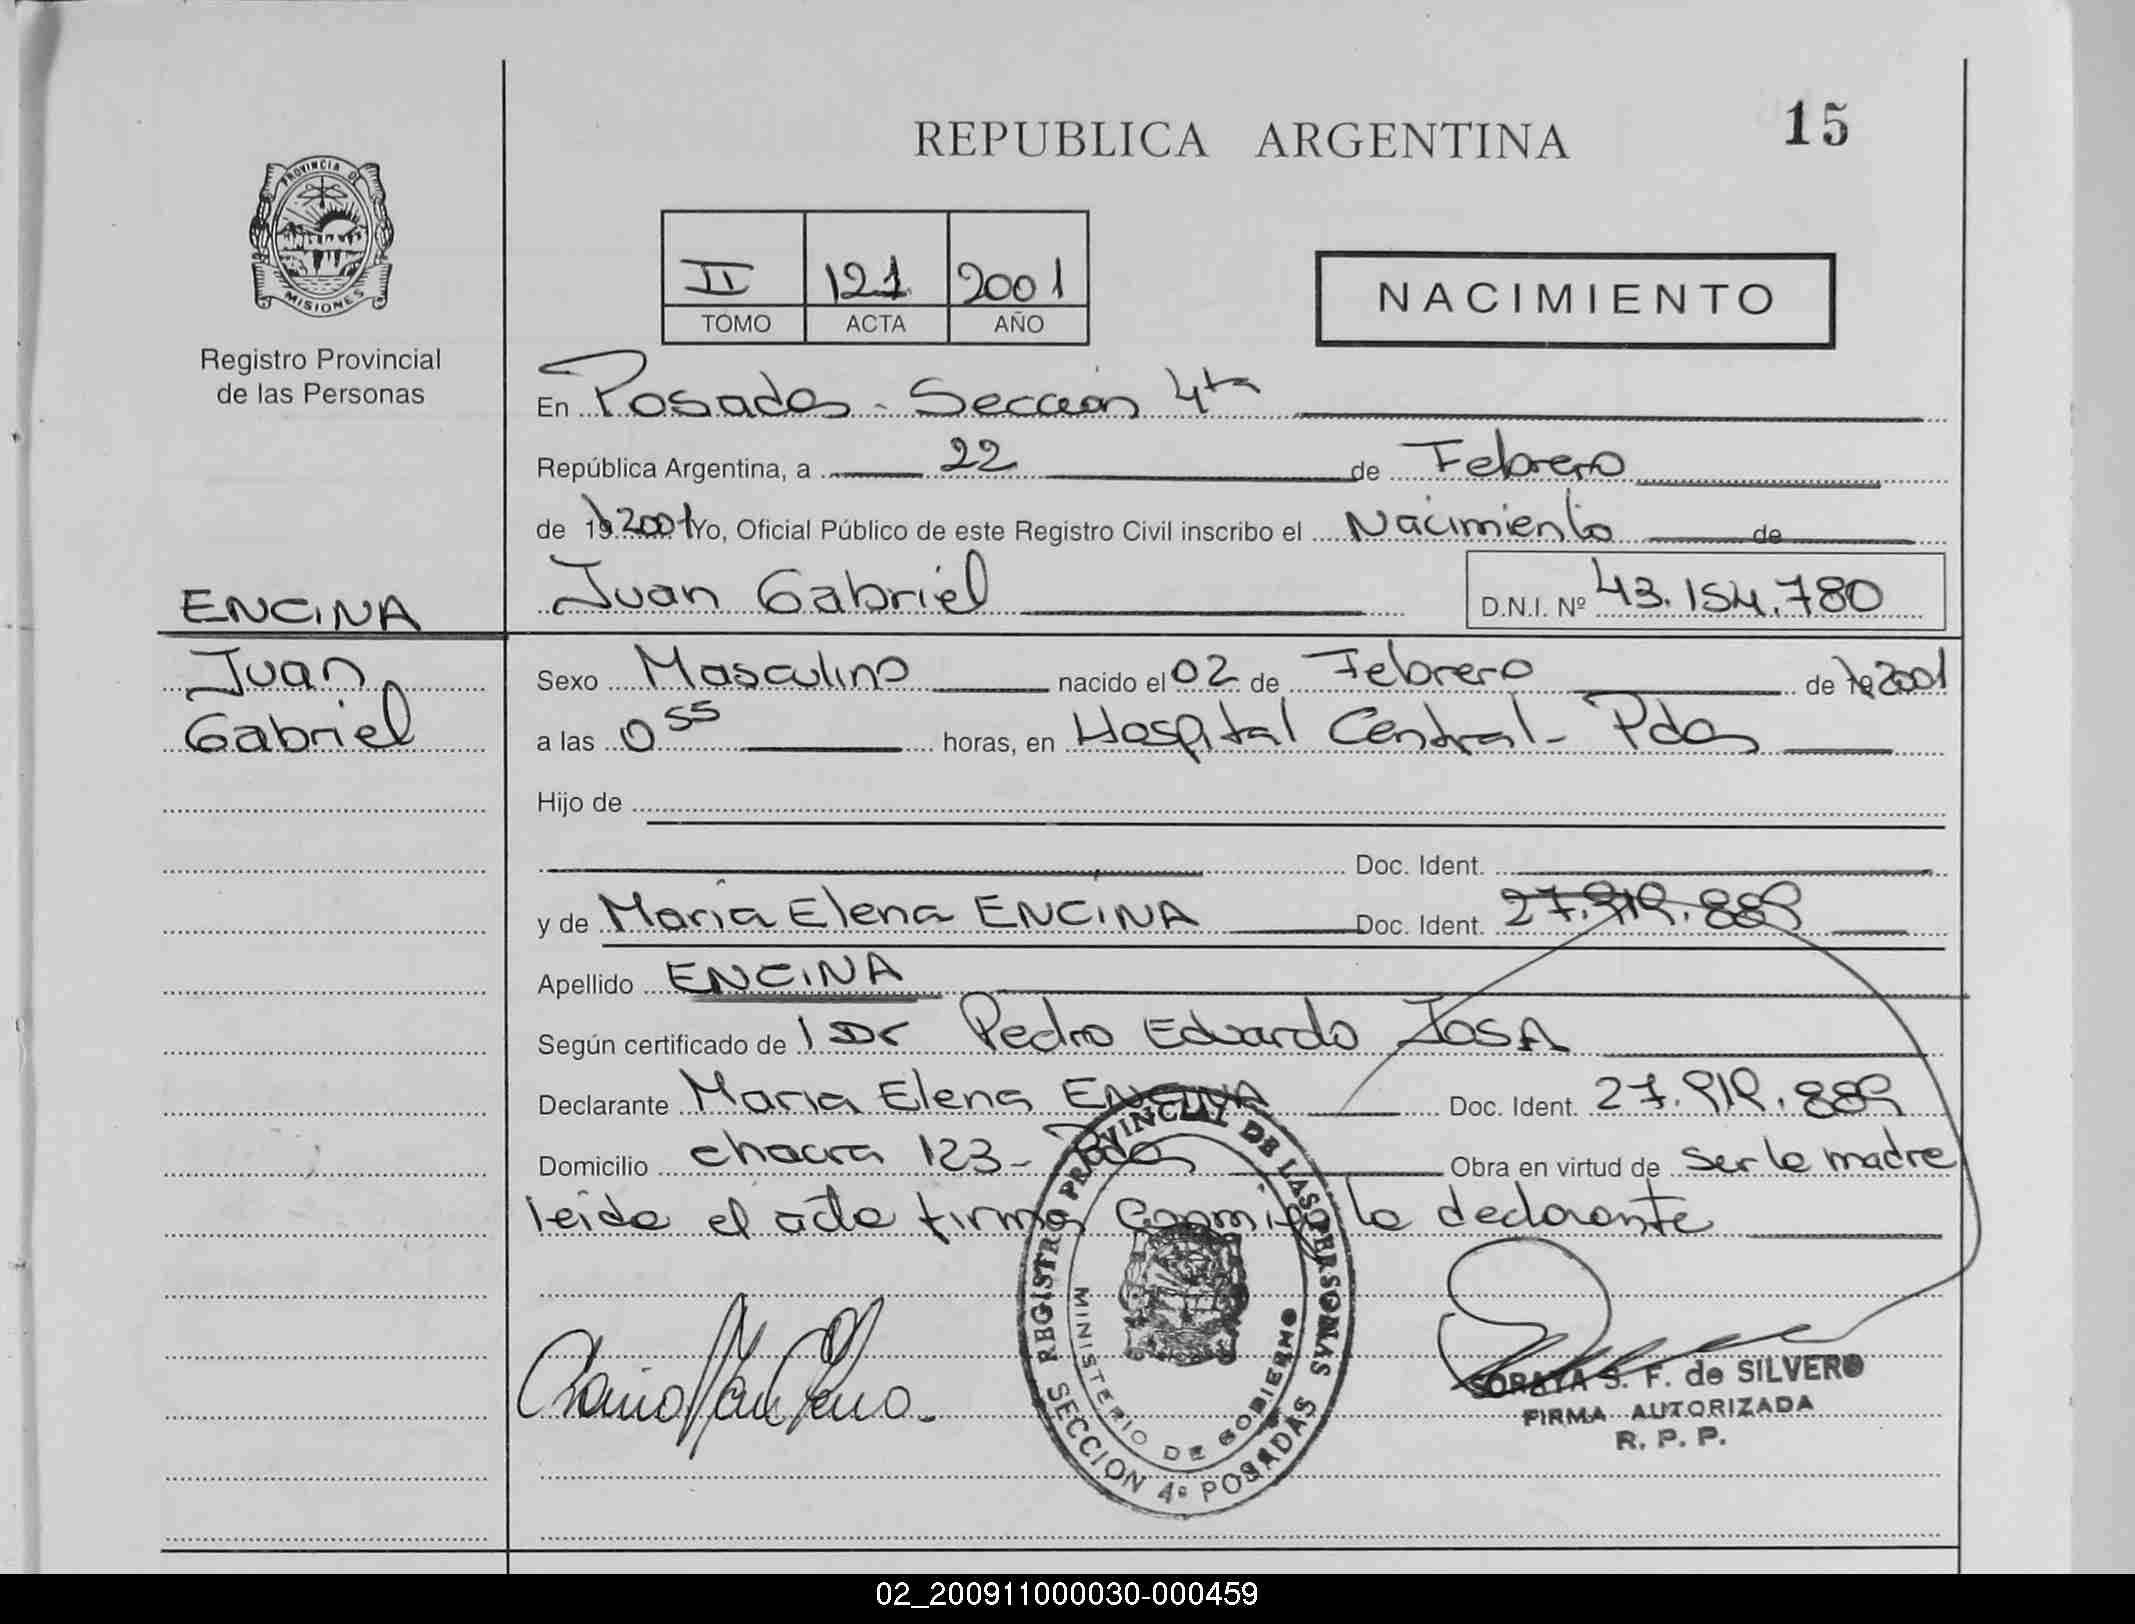 REPUBLICA ARGENTINA
15
PROVINCIA DE
MISIONES
Registro Provincial
de las Personas
II 121 2001
TOMO ACTA AÑO
NACIMIENTO
En Posadas - Sección 4ta
República Argentina, a 22 de Febrero
de 19 2001 Yo, Oficial Público de este Registro Civil inscribo el Nacimiento de
Juan Gabriel D.N.I. Nº 43.154.780
ENCINA
Juan
Gabriel
Sexo Masculino nacido el 02 de Febrero de 19 2001
a las 0 55 horas, en Hospital Central - Pdas
Hijo de
Doc. Ident.
y de María Elena ENCINA Doc. Ident. 27.919.889
Apellido ENCINA
Según certificado de l Dr Pedro Eduardo SOSA
Declarante Maria Elena ENCINA Doc. Ident. 27.919.889
Domicilio chacra 123 - Pdas Obra en virtud de ser la madre
leida el acta firma conmigo la declarante
REGISTRO PROVINCIAL DE LAS PERSONAS
MINISTERIO DE GOBIERNO
SECCION 4º POSADAS
SORAYA S. F. de SILVERO
FIRMA AUTORIZADA
R. P. P.
02_200911000030-000459